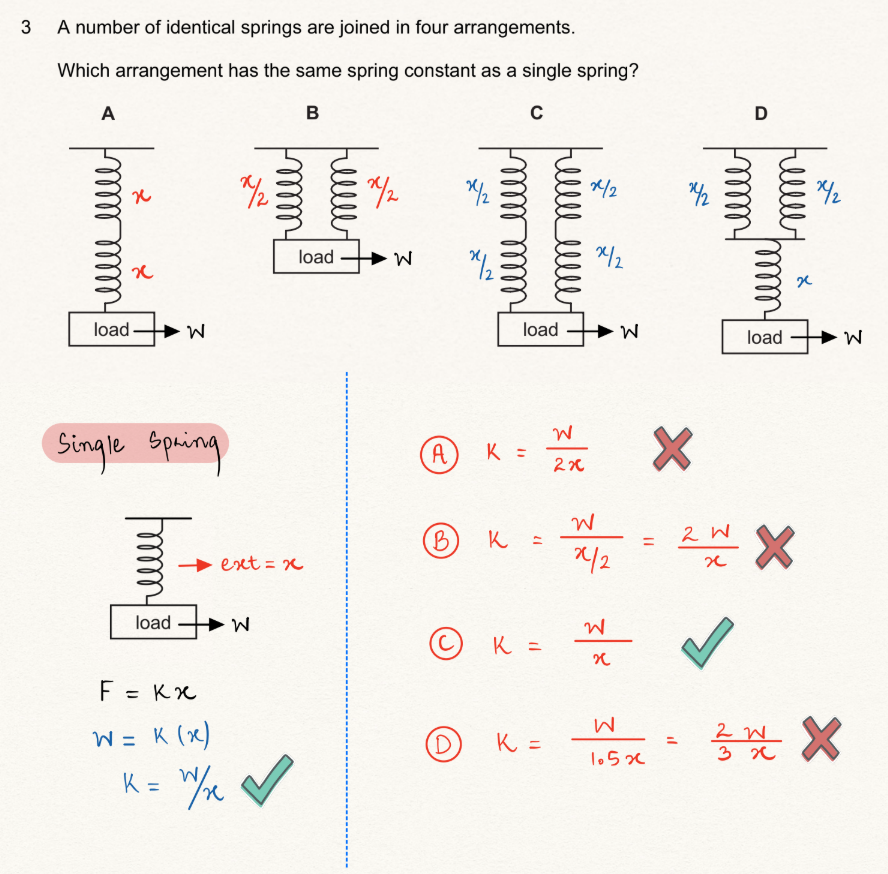 3 A number of identical springs are joined in four arrangements.
Which arrangement has the same spring constant as a single spring?
A B C D
x
x
x/2 x/2
x/2 x/2
x/2 x/2
x/2 x/2
x
load W
load W
load W
load W
Single Spring
ext = x
load W
F = Kx
W = K (x)
K = W/x
Ⓐ K = W/2x
Ⓑ K = W/x/2 = 2W/x
Ⓒ K = W/x
Ⓓ K = W/1.5x = 2W/3x